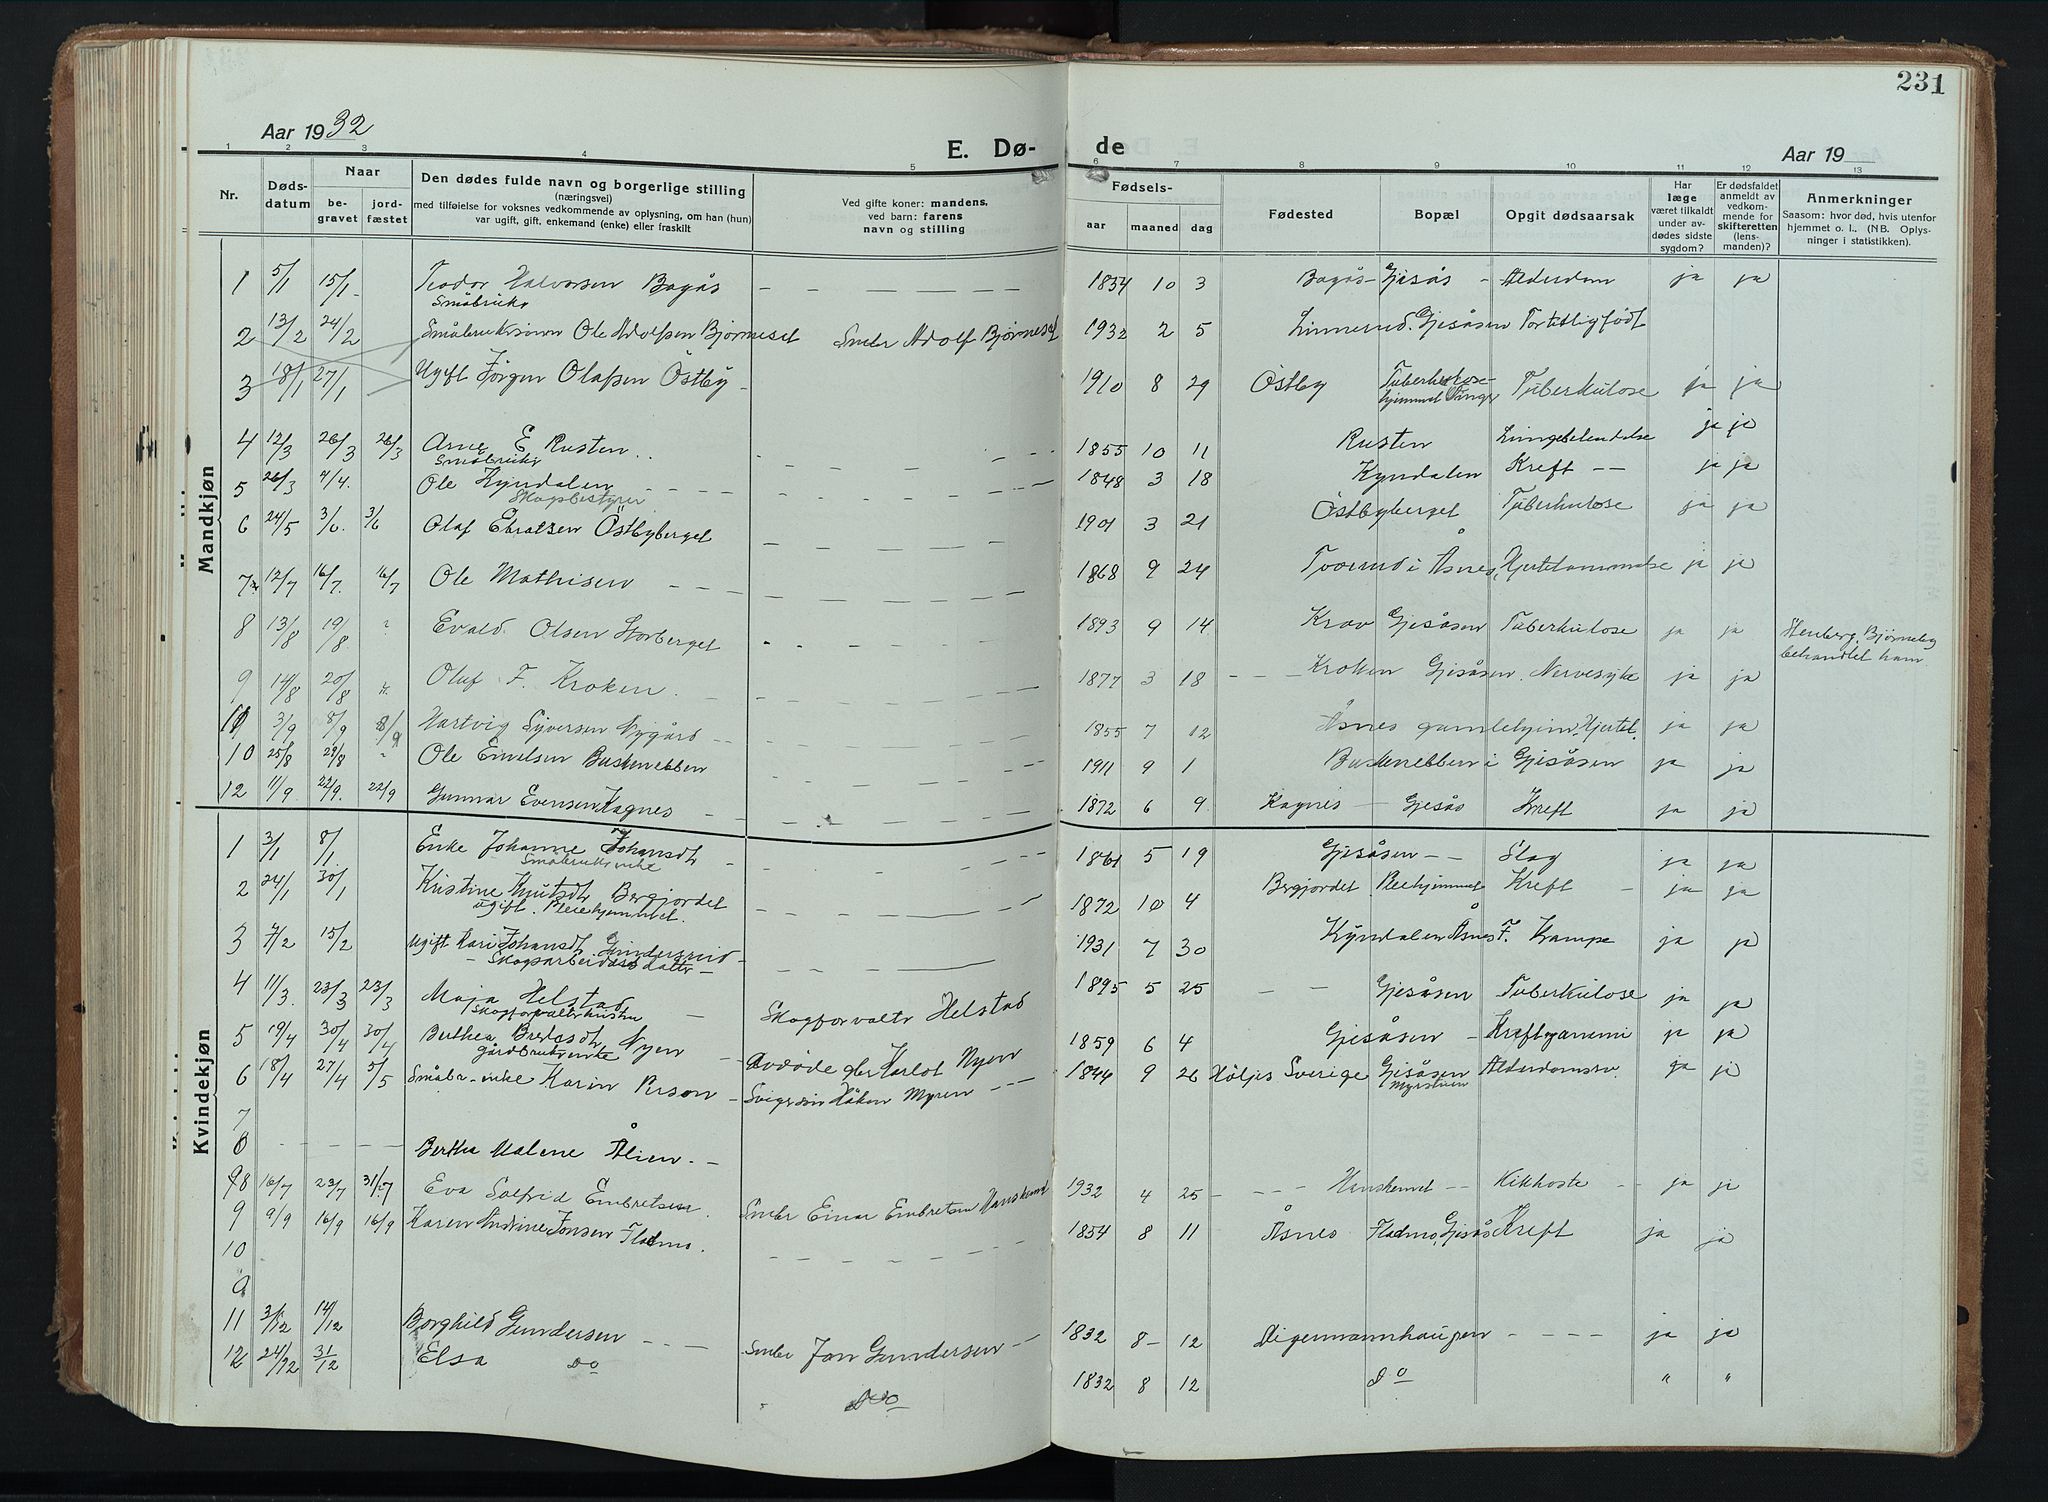 231
Aar 1932
E. Dø-
de
Aar 19
1 2 3 4 5 6 7 8 9 10 11 12 13
Nr.
Døds-
datum
Naar
be-
gravet
jord-
fæstet
Den dødes fulde navn og borgerlige stilling
(næringsvei)
med tilføielse for voksnes vedkommende av oplysning, om han (hun)
var ugift, gift, enkemand (enke) eller fraskilt
Ved gifte koner: mandens,
ved barn: farens
navn og stilling
Fødsels-
aar maaned dag
Fødested
Bopæl
Opgit dødsaarsak
Har
læge
været tilkaldt
under av-
dødes sidste
sygdom?
Er dødsfaldet
anmeldt av
vedkom-
mende for
skifteretten
(lens-
manden)?
Anmerkninger
Saasom: hvor død, hvis utenfor
hjemmet o. l.. (NB. Oplys-
ninger i statistikken).
Mandkjøn
1 5/1 15/1 Teodor Halvorsen Bagås 1854 10 3 Bagås Gjesås Alderdom ja ja
Småbruker
2 13/2 24/2 Småbrukersønn Ole Adolfsen Bjørneset Smbr Adolf Bjørneset 1932 2 5 Linnerud Gjesåsen Fortidligfødt
3 18/1 27/1 Ugift Jørgen Olafsen Östby 1910 8 29 Östby Tuberkulose- Tuberkulose ja ja
hjemmet
4 12/3 26/3 26/3 Arne E Rusten 1855 10 11 Rusten Lungebetendelse ja ja
Småbruker
5 26/3 4/4 Ole Kyndalen 1848 3 18 Kyndalen Kreft ja ja
Skogbestyrer
6 24/5 3/6 3/6 Olaf Östbyberget 1901 3 21 Östbyberget Tuberkulose ja ja
7 12/7 16/7 16/7 Ole Mathisen 1868 9 24 i Åsnes ja ja
8 13/8 19/8 Evald Olsen Storberget 1893 9 14 Gjesåsen Tuberkulose ja ja
behandlet ham
9 14/8 20/8 Olaf F. Kroken 1877 3 18 Kroken Gjesåsen Nervesyke ja ja
11 3/9 8/9 8/9 Hartvig Syversen Nygård 1855 7 12 Åsnes gamlehjem Hjertef. ja ja
10 25/8 29/8 Ole Emilsen Buskenebben 1911 9 1 Buskenebben i Gjesåsen ja ja
12 11/9 22/9 22/9 Gunnar Evensen Kagnes 1872 6 9 Kagnes Gjesås Kreft ja ja
Kvindekjøn
1 3/1 8/1 Enke Johanne Johansdt 1861 5 19 Gjesåsen Slag ja ja
Småbrukerenke
2 24/1 30/1 Kristine Knutsdt Bergjordet 1872 10 4 Bergjordet Pleiehjemmet Kreft ja ja
ugift. Pleiehjemmet.
3 7/2 15/2 Ugift Kari Johansdt 1931 7 30 Kyndalen Åsnes F. Krampe ja ja
Skogsarbeidersdatter
4 11/3 23/3 23/3 Maja Helstad Skogforvalter Helstad 1895 5 25 Gjesåsen Tuberkulose ja ja
5 19/4 30/4 30/4 Berthea Nyen Avdøde gbr Karlot Nyen 1859 6 4 Gjesåsen ja ja
Gårdbrukerenke
6 18/4 27/4 5/5 Småbr-enke Karin Person Svigersøn Håken Myren 1844 9 26 Höljes Sverige Gjesåsen Alderdomssv. ja ja
7
8 Berthea Malene Ålien
8 16/7 23/7 31/7 Eva Solfrid Embretsen Smbr Einar Embretsen Hanskemet 1932 4 25 Hanskemet Kikhoste ja ja
9 9/9 16/9 16/9 Karen Andrine Jonsen Fladmo. 1854 8 11 Åsnes Fladmo, Gjesås Kreft ja ja
10
9
11 3/12 14/12 Borghild Gundersen Smbr Jan Gundersen 1832 8 12 Digermannhaugen ja ja
12 24/12 31/12 Elsa do do 1832 8 12 do " "